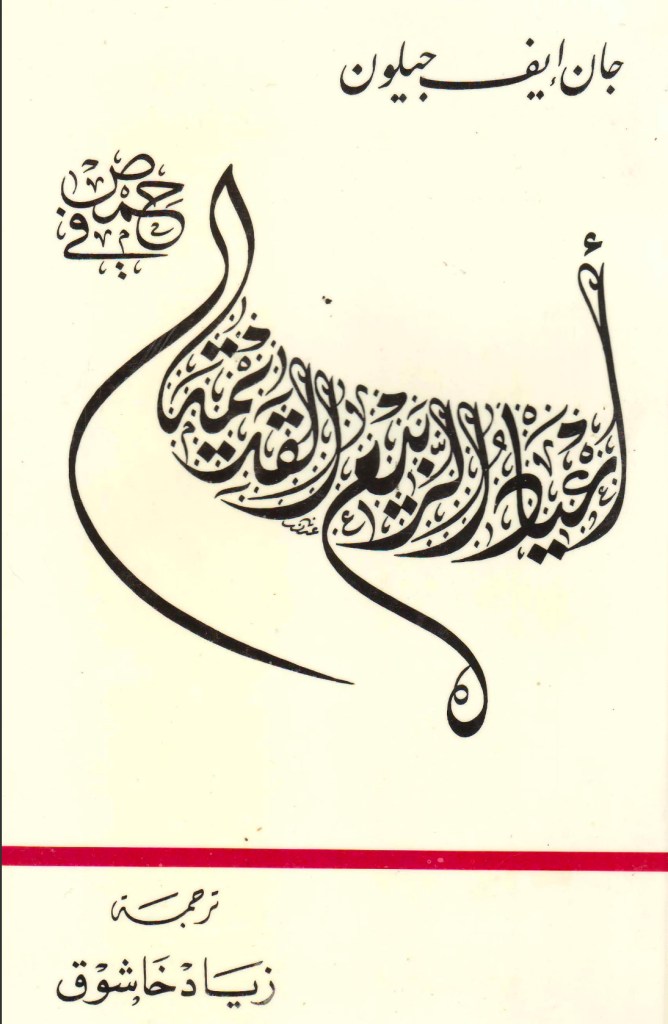 جان إيف جيلون
أعياد الربيع القديمة
في حمص
ترجمة
زياد خاشوق